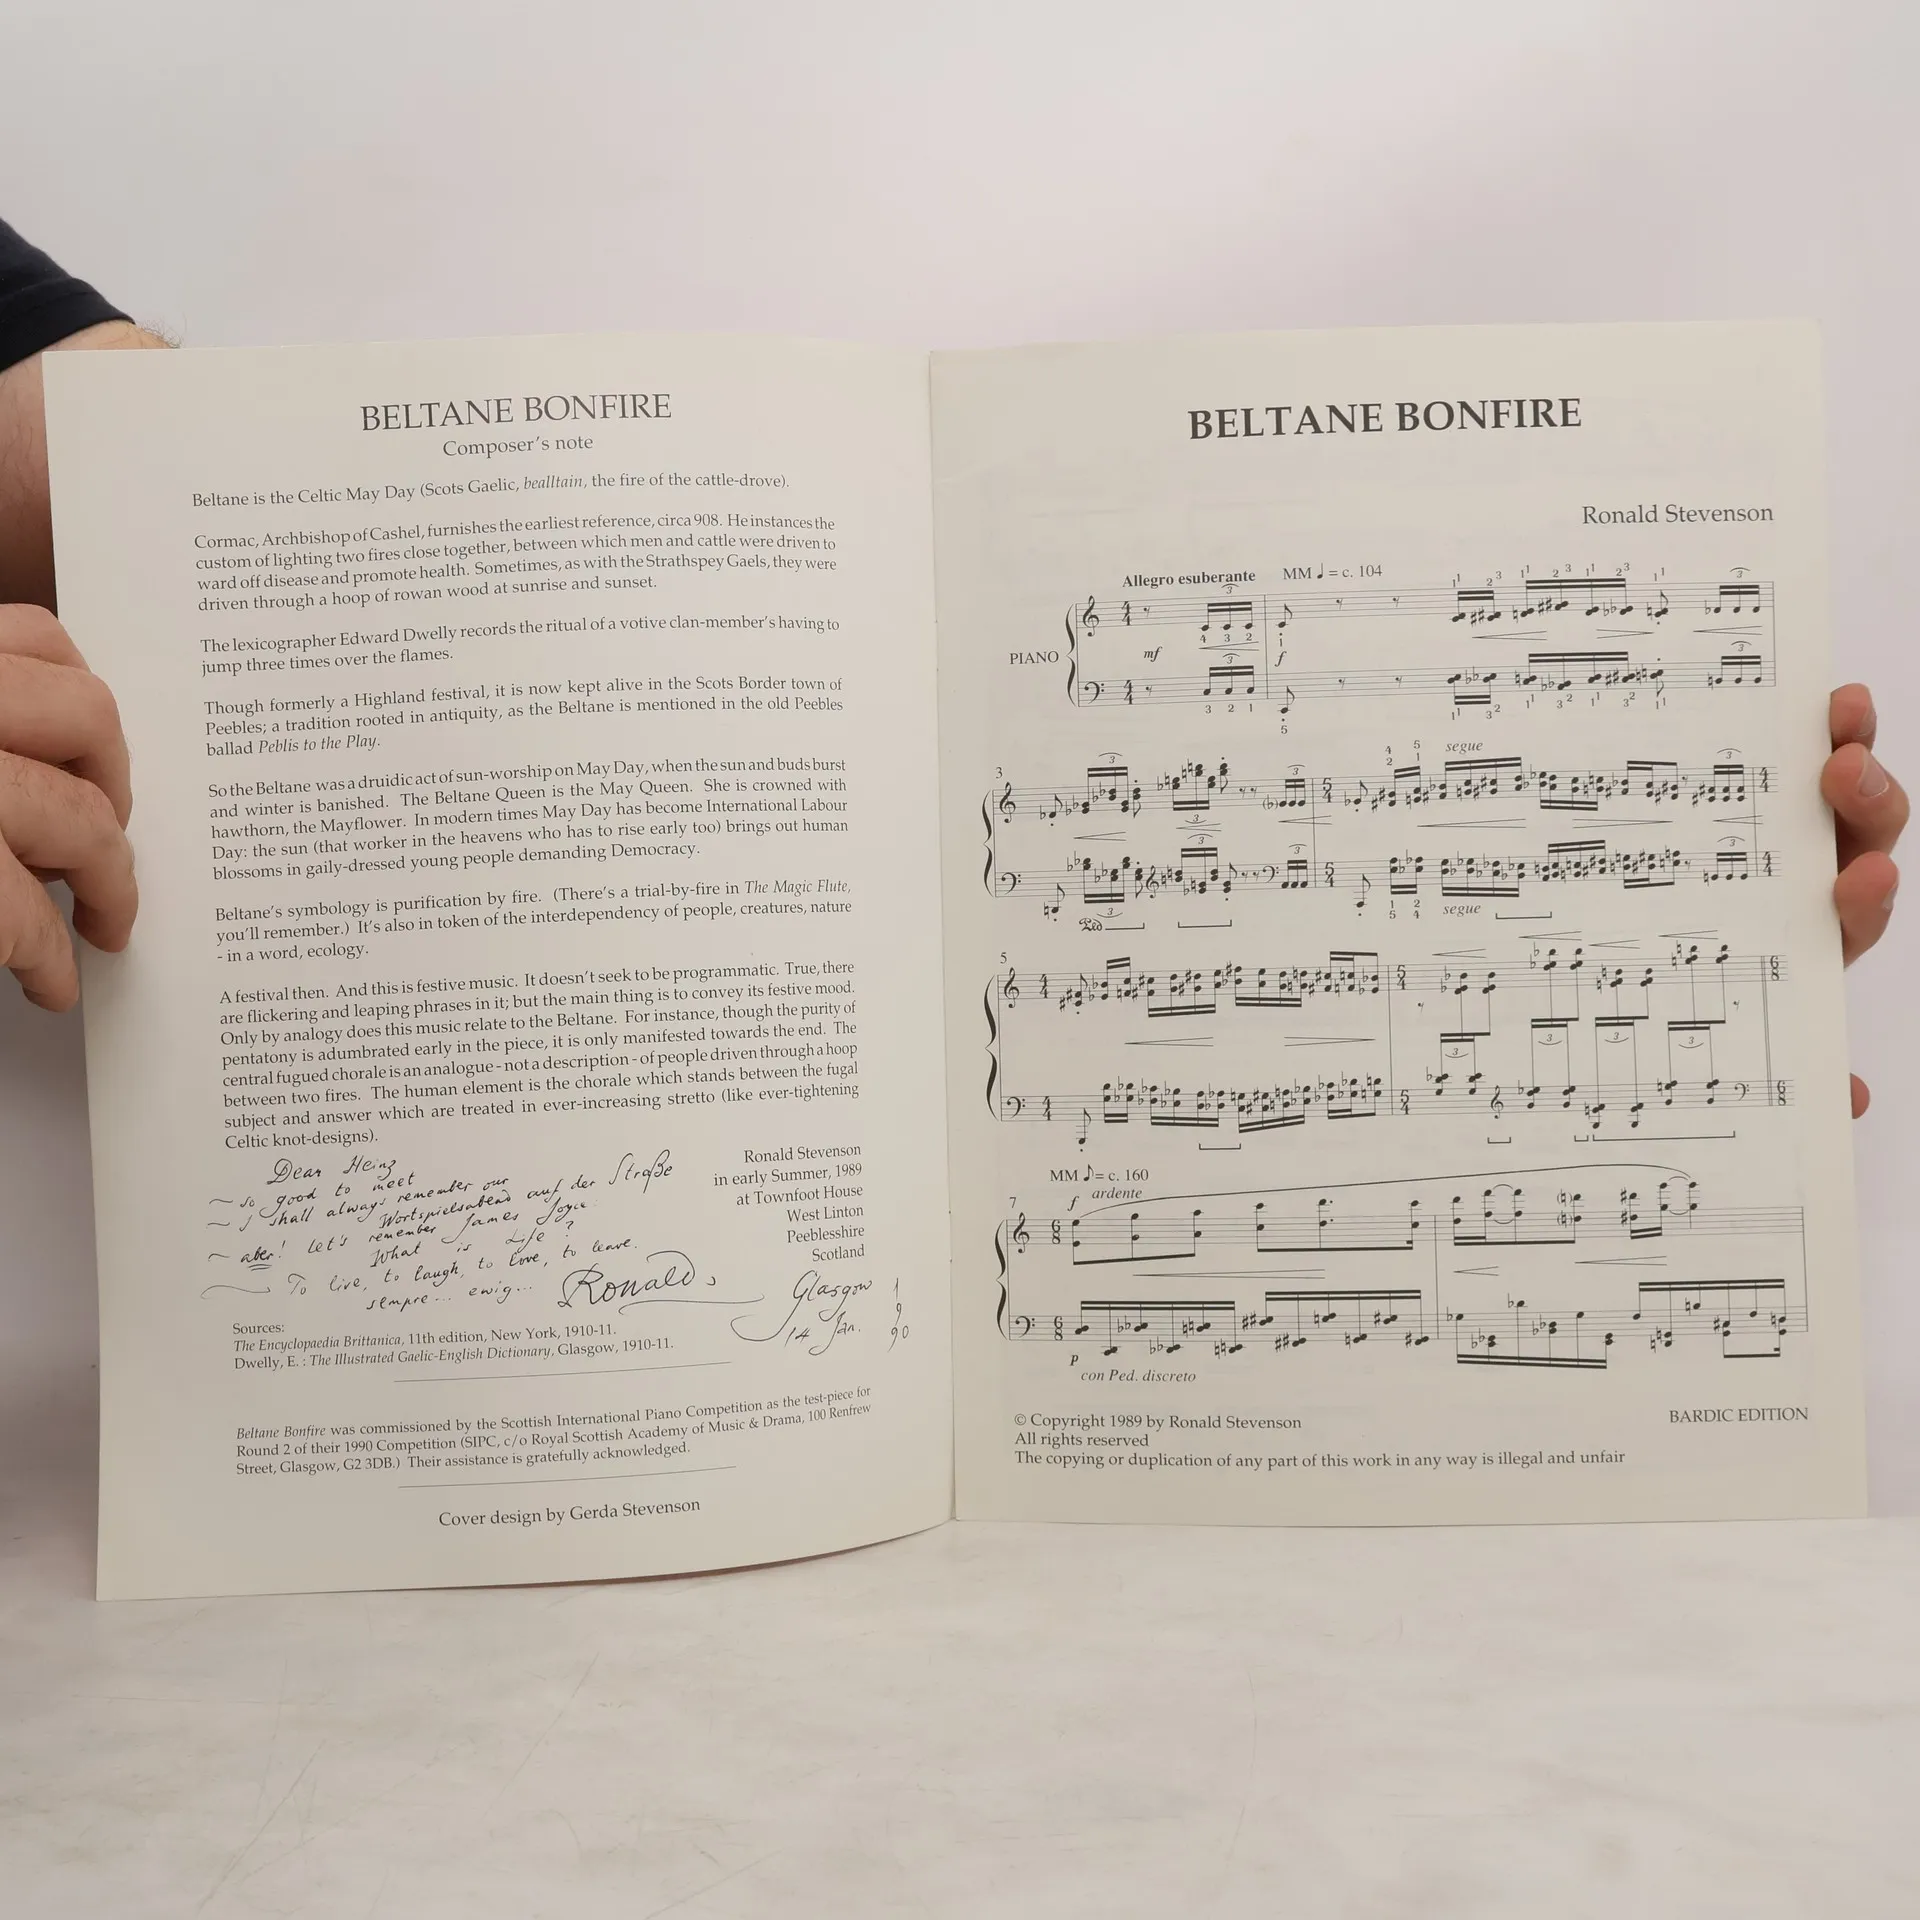 BELTANE BONFIRE
Composer's note
Beltane is the Celtic May Day (Scots Gaelic, bealltain, the fire of the cattle-drove).
Cormac, Archbishop of Cashel, furnishes the earliest reference, circa 908. He instances the
custom of lighting two fires close together, between which men and cattle were driven to
ward off disease and promote health. Sometimes, as with the Strathspey Gaels, they were
driven through a hoop of rowan wood at sunrise and sunset.
The lexicographer Edward Dwelly records the ritual of a votive clan-member's having to
jump three times over the flames.
Though formerly a Highland festival, it is now kept alive in the Scots Border town of
Peebles; a tradition rooted in antiquity, as the Beltane is mentioned in the old Peebles
ballad Peblis to the Play.
So the Beltane was a druidic act of sun-worship on May Day, when the sun and buds burst
and winter is banished. The Beltane Queen is the May Queen. She is crowned with
hawthorn, the Mayflower. In modern times May Day has become International Labour
Day: the sun (that worker in the heavens who has to rise early too) brings out human
blossoms in gaily-dressed young people demanding Democracy.
Beltane's symbology is purification by fire. (There's a trial-by-fire in The Magic Flute,
you'll remember.) It's also in token of the interdependency of people, creatures, nature
- in a word, ecology.
A festival then. And this is festive music. It doesn't seek to be programmatic. True, there
are flickering and leaping phrases in it; but the main thing is to convey its festive mood.
Only by analogy does this music relate to the Beltane. For instance, though the purity of
pentatony is adumbrated early in the piece, it is only manifested towards the end. The
central fugued chorale is an analogue - not a description - of people driven through a hoop
between two fires. The human element is the chorale which stands between the fugal
subject and answer which are treated in ever-increasing stretto (like ever-tightening
Celtic knot-designs).
Ronald Stevenson
in early Summer, 1989
at Townfoot House
West Linton
Peeblesshire
Scotland
Dear Heinz
~ so good to meet
~ I shall always remember our
Wortspielsabend auf der Straße
~ aber! Let's remember James Joyce:
What is Life?
To live, to laugh, to love, to leave.
sempre... ewig...
Ronald,
Glasgow
14 Jan.
1
9
90
Sources:
The Encyclopaedia Brittanica, 11th edition, New York, 1910-11.
Dwelly, E. : The Illustrated Gaelic-English Dictionary, Glasgow, 1910-11.
Beltane Bonfire was commissioned by the Scottish International Piano Competition as the test-piece for
Round 2 of their 1990 Competition (SIPC, c/o Royal Scottish Academy of Music & Drama, 100 Renfrew
Street, Glasgow, G2 3DB.) Their assistance is gratefully acknowledged.
Cover design by Gerda Stevenson
BELTANE BONFIRE
Ronald Stevenson
Allegro esuberante MM ♩ = c. 104
PIANO
mf
f
3
segue
segue
Ped
5
MM ♪ = c. 160
7
f ardente
p
con Ped. discreto
© Copyright 1989 by Ronald Stevenson
All rights reserved
The copying or duplication of any part of this work in any way is illegal and unfair
BARDIC EDITION